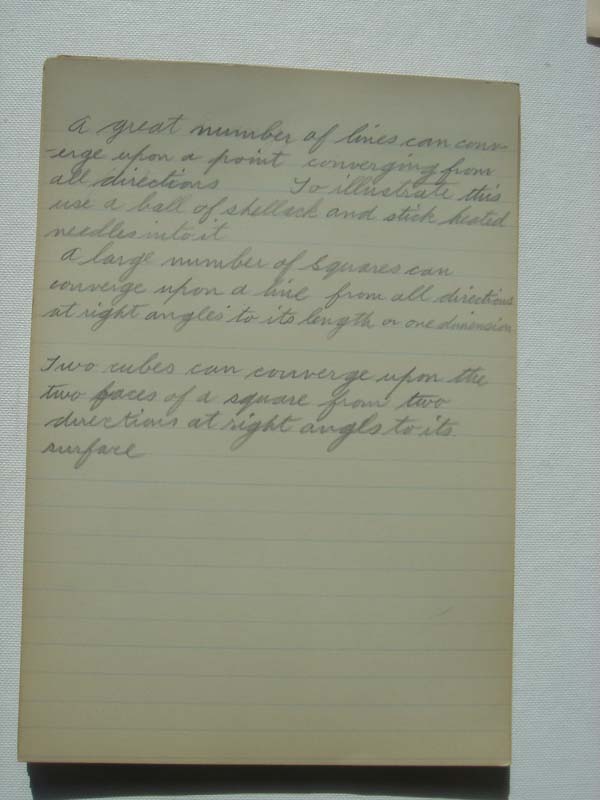 A great number of lines can conv-
-erge upon a point converging from
all directions To illustrate this
use a ball of shellack and stick heated
needles into it
A large number of Squares can
converge upon a line from all directions
at right angles to its length or one dimension
Two cubes can converge upon the
two faces of a square from two
directions at right angls to its
surface